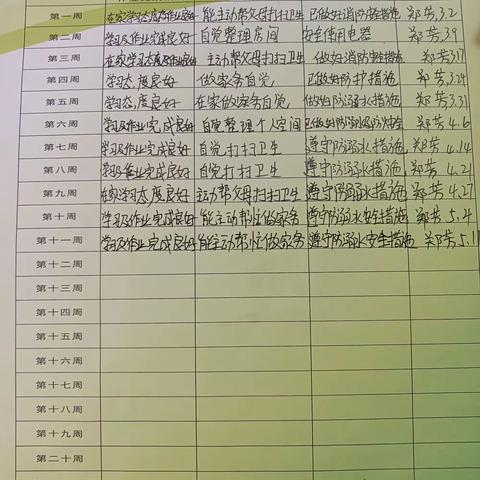 第一周 在家学习态度及作业良好 能主动帮父母打扫卫生 已做好消防安全措施 郑芳3.2
第二周 学习及作业完成良好 自觉整理房间 安全使用电器 郑芳3.9
第三周 在家学习态度及作业良好 主动帮父母打扫卫生 做好消防安全措施 郑芳3.17
第四周 学习态度良好 做家务自觉 已做好防护措施 郑芳3.24
第五周 学习态度良好 在家做家务自觉 做好防溺水措施 郑芳3.31
第六周 学习及作业完成良好 自觉整理个人空间 已做好防溺水及防火安全 郑芳4.6
第七周 学习及作业完成良好 自觉打扫卫生 遵守防溺水措施 郑芳4.14
第八周 学习及作业完成良好 自觉打扫卫生 遵守防溺水措施 郑芳4.21
第九周 在家学习态度良好 主动帮父母打扫卫生 遵守防溺水措施 郑芳4.27
第十周 学习及作业完成良好 能主动帮忙做家务 遵守防溺水安全措施 郑芳5.4
第十一周 学习及作业完成良好 能主动帮忙做家务 遵守防溺水安全措施 郑芳5.11
第十二周
第十三周
第十四周
第十五周
第十六周
第十七周
第十八周
第十九周
第二十周